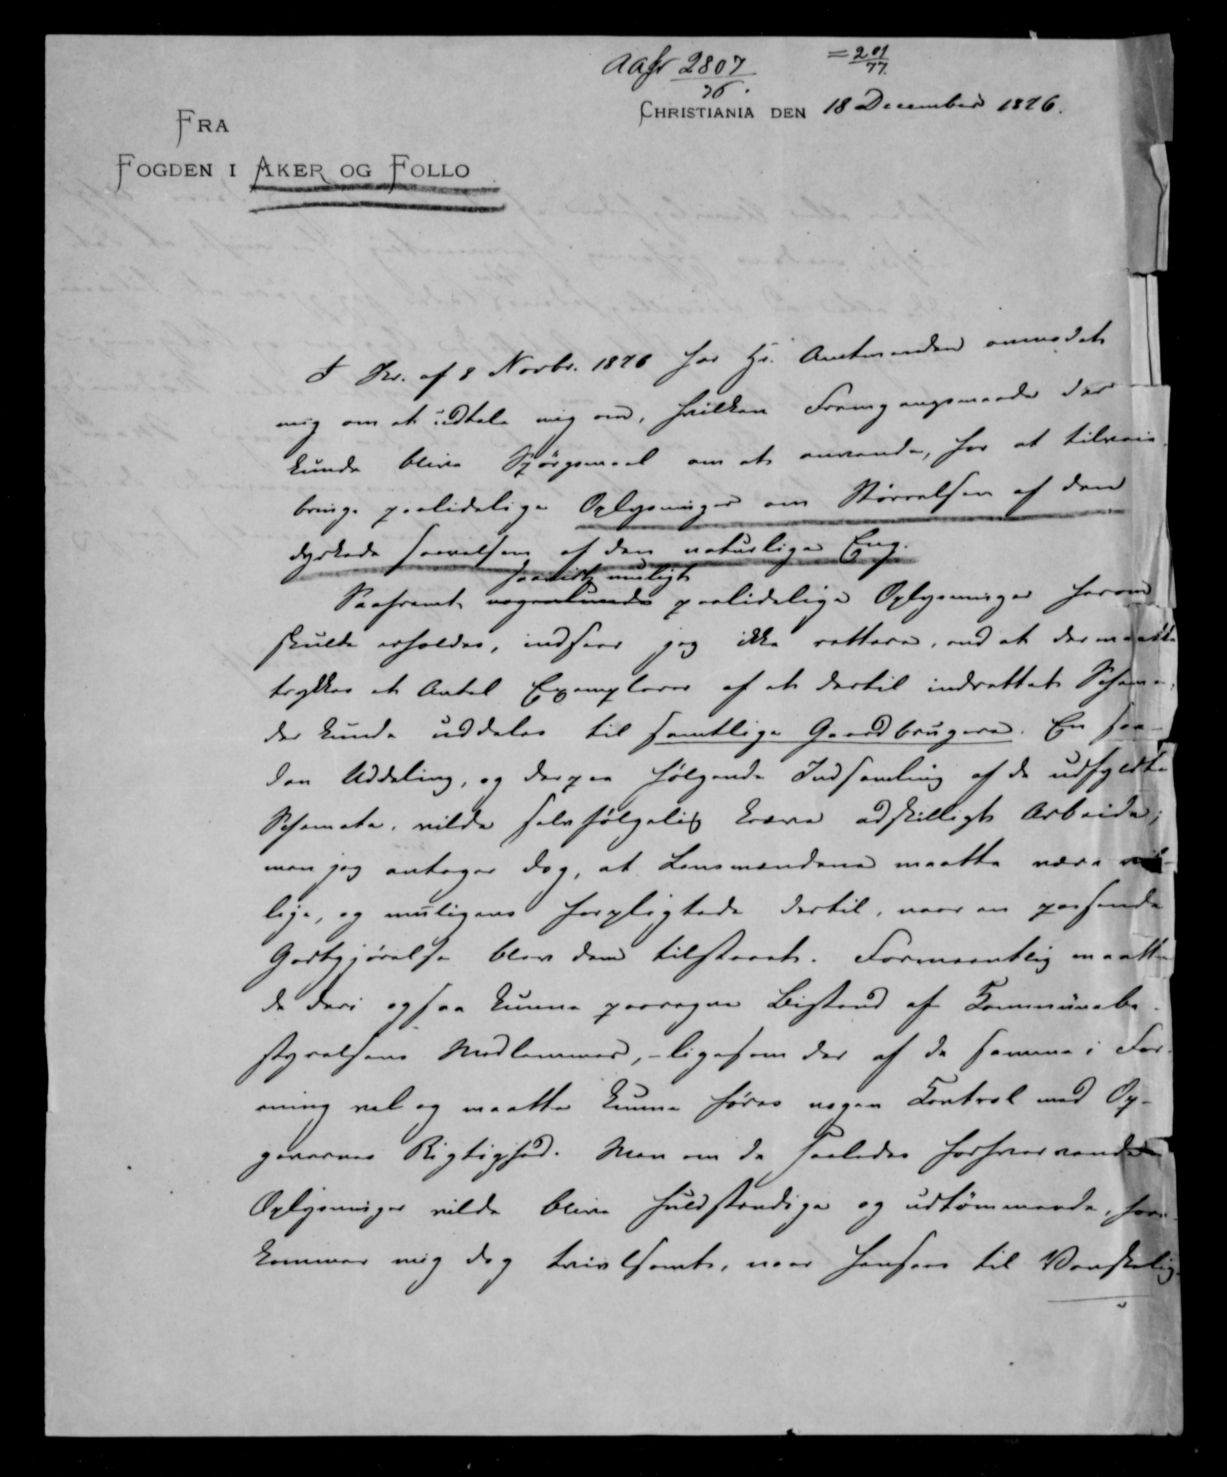 AAfr 2807/76. = 201/77.
CHRISTIANIA DEN 18 December 1876.
FRA
FOGDEN I AKER OG FOLLO
I Skr. af 8 Novbr. 1876 har Hr. Amtmanden anmodet
mig om at udtale mig om, hvilken Fremgangsmaade der
kunde blive Spørgsmaal om at anvende, for at tilveie-
bringe paalidelige Oplysninger om Størrelsen af den
dyrkede saavelsom af den naturlige Eng.
saavidt muligt
Saafremt nogenlunde paalidelige Oplysninger herom
skulle erholdes, indseer jeg ikke rettere, end at der maatte
trykkes et Antal Exemplarer af et dertil indrettet Schema,
der kunde uddeles til samtlige Gaardbrugere. En saa-
dan Uddeling, og derpaa følgende Indsamling af de udfyldte
Schemata, vilde selvfølgelig kræve adskilligt Arbeide;
men jeg antager dog, at Lensmændene maatte være vil-
lige, og muligens forpligtede dertil, naar en passende
Godtgjørelse blev dem tilstaaet. Formeentlig maatte
de deri ogsaa kunne paaregne Bistand af Kommunebe-
styrelsens Medlemmer, - ligesom der af de samme i For-
ening vel og maatte kunne føres nogen Kontrol med Op-
gavernes Rigtighed. Men om de saaledes forhvervende
Oplysninger vilde blive fuldstændige og udtømmende, fore-
kommer mig dog tvivlsomt, naar henseees til Vanskelig-